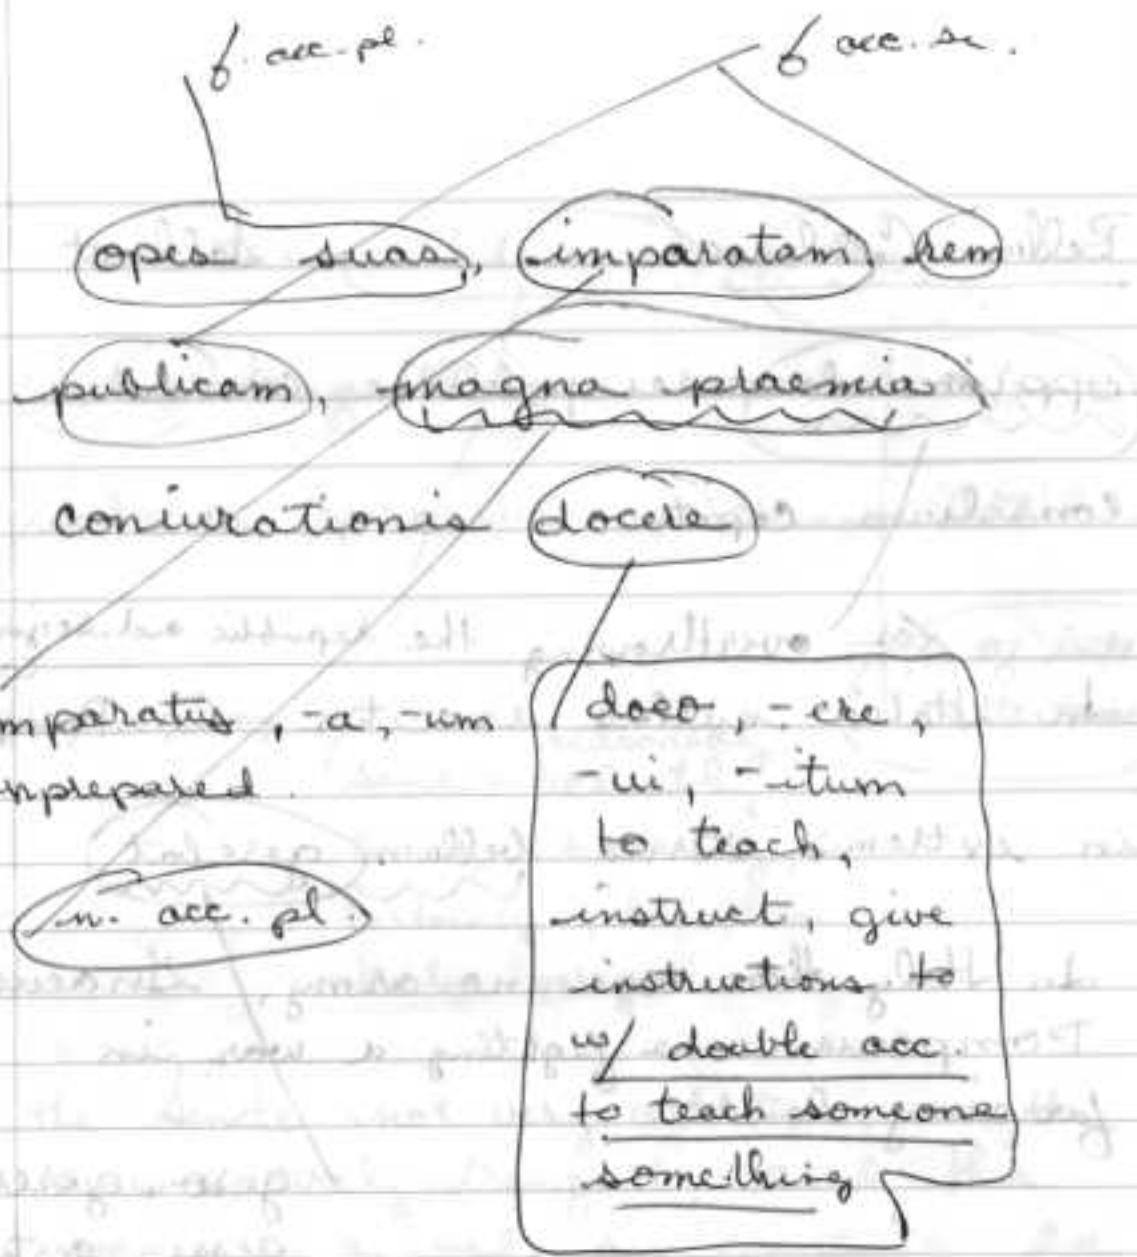 f. acc. pl.
f acc. su.
opes suas, imparatam rem
publicam, magna praemia
coniurationis docere
mparatus, -a, -um
nprepared.
n. acc. pl.
doceo, -ere,
-ui, -itum
to teach,
instruct, give
instructions to
w/ double acc.
to teach someone
something